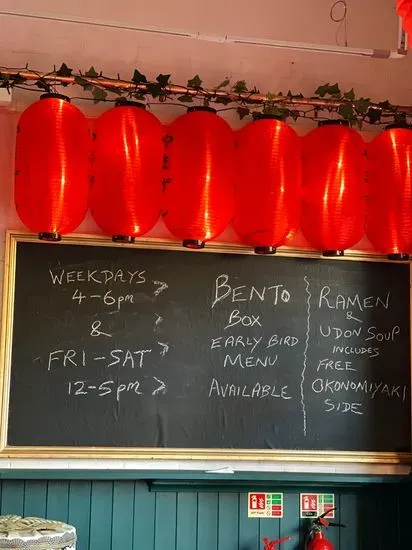 WEEKDAYS
4-6pm
&
FRI-SAT
12-5pm
BENTO
BOX
EARLY BIRD
MENU
AVAILABLE
RAMEN
&
UDON SOUP
INCLUDES
FREE
OKONOMIYAKI
SIDE